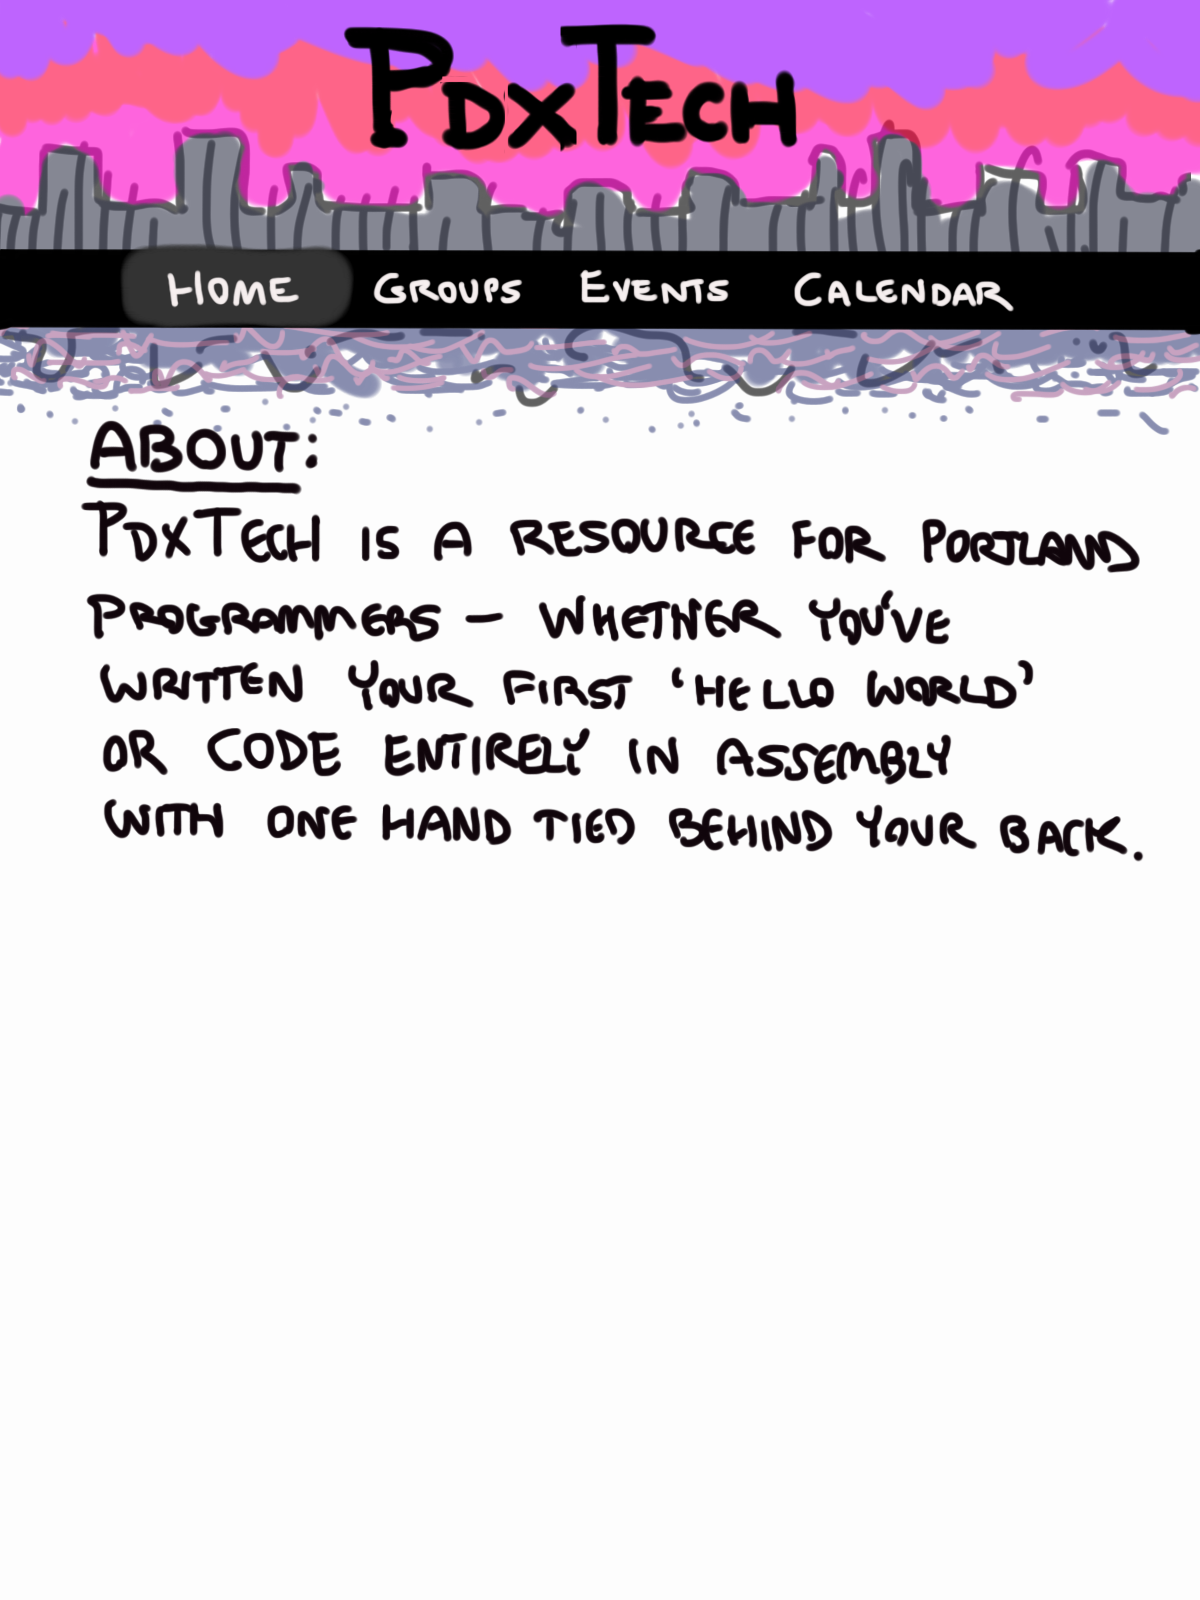 PDXTECH
HOME GROUPS EVENTS CALENDAR
ABOUT:
PDXTECH IS A RESOURCE FOR PORTLAND
PROGRAMMERS – WHETHER YOU'VE
WRITTEN YOUR FIRST 'HELLO WORLD'
OR CODE ENTIRELY IN ASSEMBLY
WITH ONE HAND TIED BEHIND YOUR BACK.